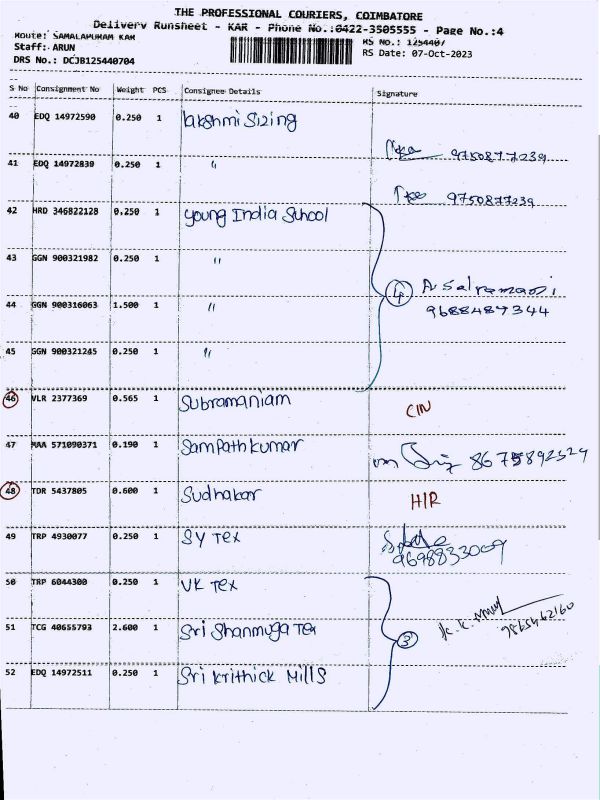 THE PROFESSIONAL COURIERS, COIMBATORE
Delivery Runsheet - KAR - Phone No.:0422-3505555 - Page No.:4
Route: SAMALAPURAM KAR
RS No.: 1254407
Staff: ARUN
RS Date: 07-Oct-2023
DRS No.: DCJB125440704
S No Consignment No Weight PCS Consignee Details Signature
40 EDQ 14972590 0.250 1 Lakshmi Sizing
9750877239
41 EDQ 14972839 0.250 1 "
9750877239
42 HRD 346822128 0.250 1 young India School
43 GGN 900321982 0.250 1 "
4 A. Salramani
9688487344
44 GGN 900316063 1.500 1 "
45 GGN 900321245 0.250 1 "
46 VLR 2377369 0.565 1 Subramaniam CIN
47 MAA 571090371 0.190 1 Sampathkumar 8675892529
48 TDR 5437805 0.600 1 Sudhakar HIR
49 TRP 4930077 0.250 1 SY Tex
9698833009
50 TRP 6044300 0.250 1 VK Tex
51 TCG 40655793 2.600 1 Sri Shanmuga Tex 3 9865462160
52 EDQ 14972511 0.250 1 Sri Krithick Mills